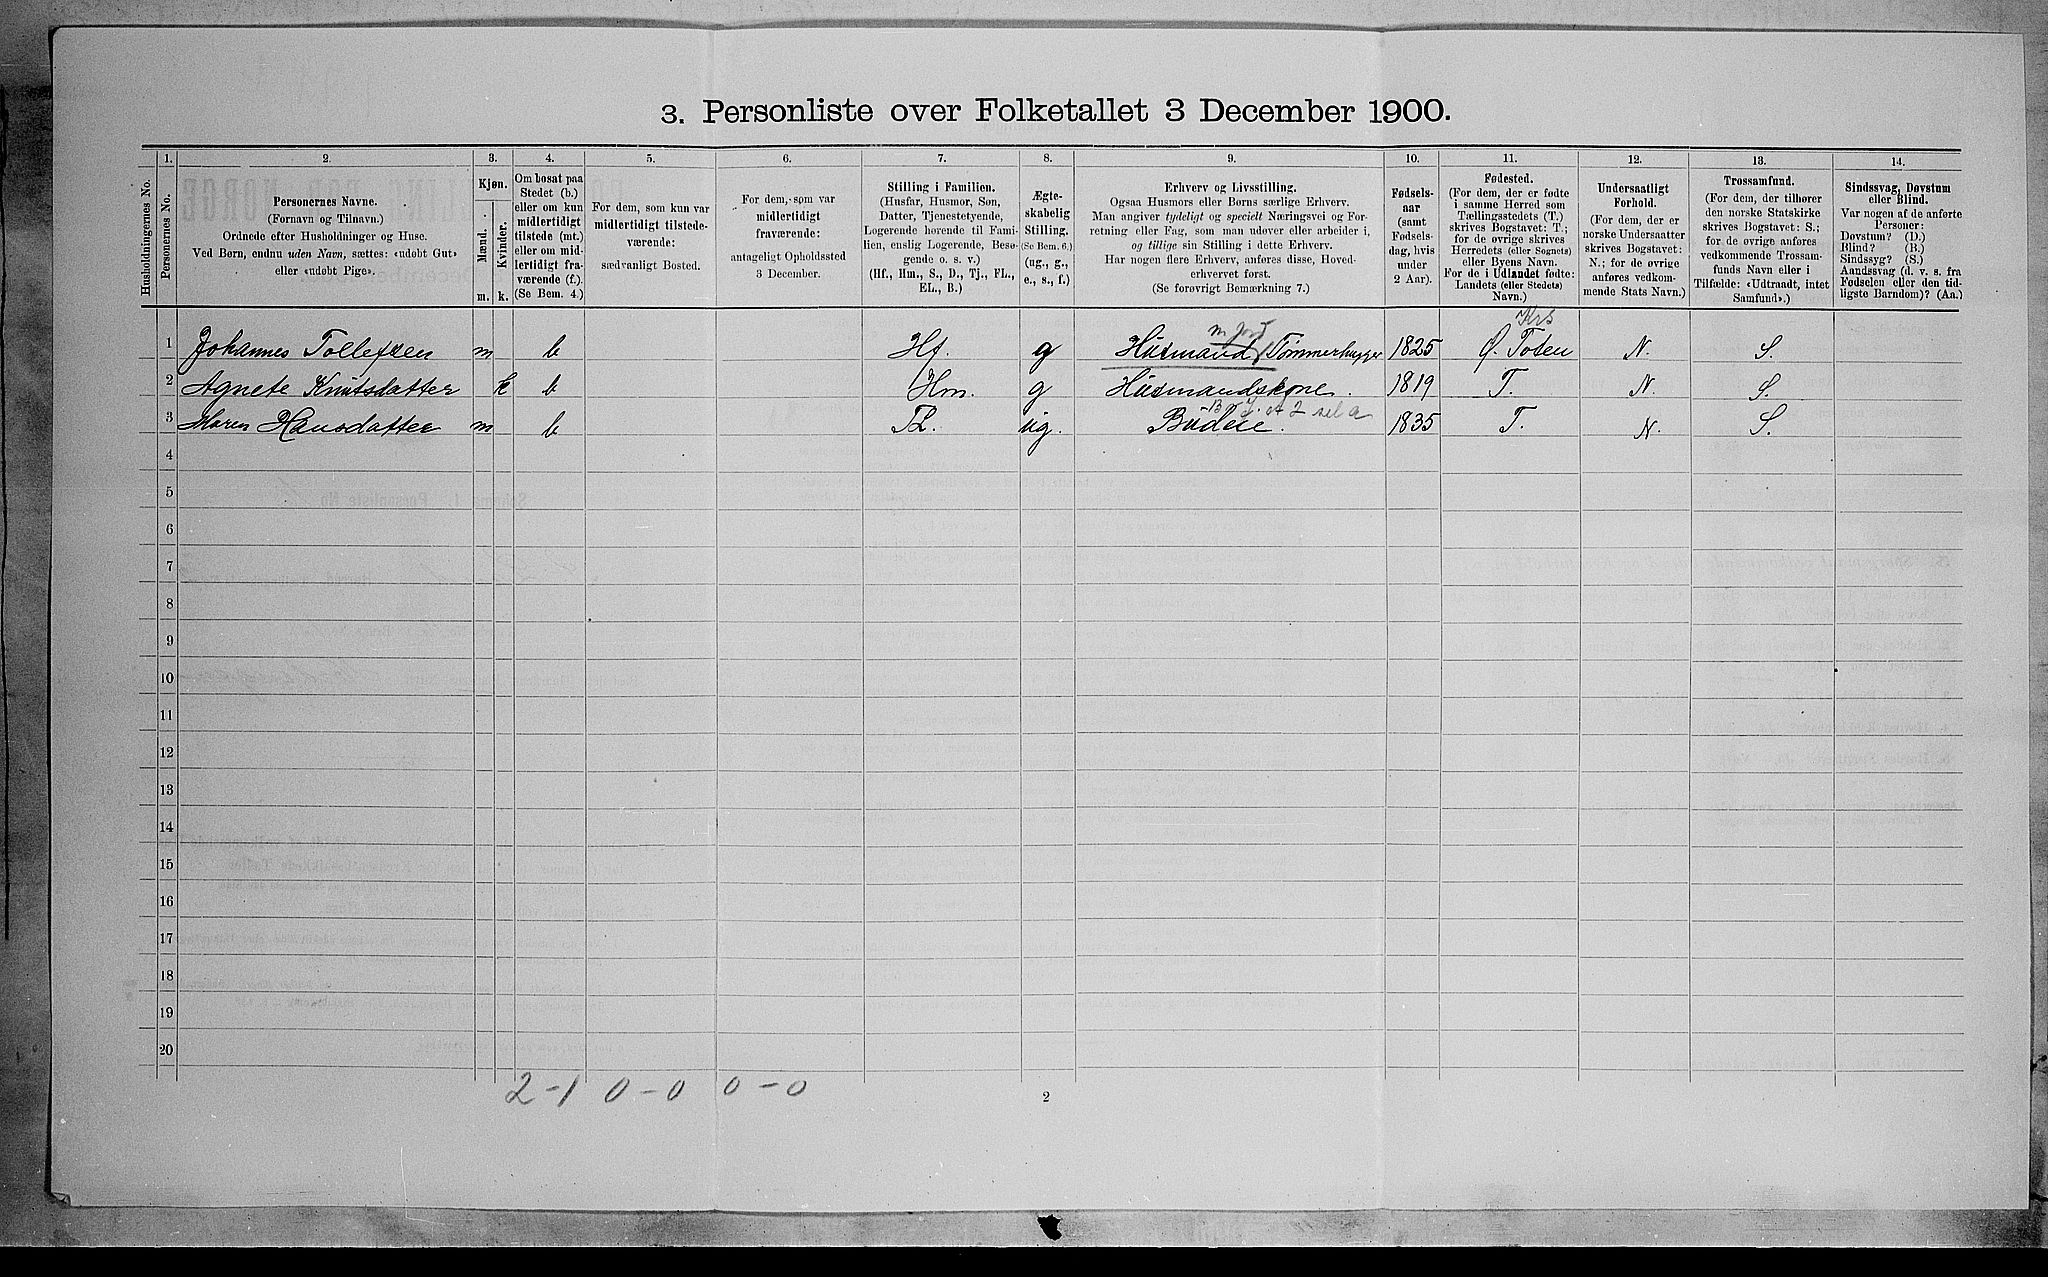 3. Personliste over Folketallet 3 December 1900.
Husholdningernes No.
1.
Personernes No.
2.
Personernes Navne.
(Fornavn og Tilnavn.)
Ordnede efter Husholdninger og Huse.
Ved Børn, endnu uden Navn, sættes: «udøbt Gut»
eller «udøbt Pige».
3.
Kjøn.
Mænd.
Kvinder.
m.
k.
4.
Om bosat paa
Stedet (b.)
eller om kun
midlertidigt
tilstede (mt.)
eller om mid-
lertidigt fra-
værende (f.).
(Se Bem. 4.)
5.
For dem, som kun var
midlertidigt tilstede-
værende:
sædvanligt Bosted.
6.
For dem, som var
midlertidigt
fraværende:
antageligt Opholdssted
3 December.
7.
Stilling i Familien.
(Husfar, Husmor, Søn,
Datter, Tjenestetyende,
Logerende hørende til Fami-
lien, enslig Logerende, Besø-
gende o. s. v.)
(Hf., Hm., S., D., Tj., FL.,
EL., B.)
8.
Ægte-
skabelig
Stilling.
(Se Bem. 6.)
(ug., g.,
e., s., f.)
9.
Erhverv og Livsstilling.
Ogsaa Husmors eller Børns særlige Erhverv.
Man angiver tydeligt og specielt Næringsvei og For-
retning eller Fag, som man udøver eller arbeider i,
og tillige sin Stilling i dette Erhverv.
Har nogen flere Erhverv, anføres disse, Hoved-
erhvervet først.
(Se forøvrigt Bemærkning 7.)
10.
Fødsels-
aar
(samt
Fødsels-
dag, hvis
under
2 Aar).
11.
Fødested.
(For dem, der er fødte
i samme Herred som
Tællingsstedets (T.)
skrives Bogstavet: T.;
for de øvrige skrives
Herredets (eller Sognets)
eller Byens Navn.
For de i Udlandet fødte:
Landets (eller Stedets)
Navn.)
12.
Undersaatligt
Forhold.
(For dem, der er
norske Undersaatter
skrives Bogstavet:
N.; for de øvrige
anføres vedkom-
mende Stats Navn.)
13.
Trossamfund.
(For dem, der tilhører
den norske Statskirke
skrives Bogstavet: S.;
for de øvrige anføres
vedkommende Trossam-
funds Navn eller i
Tilfælde: «Udtraadt, intet
Samfund».)
14.
Sindssvag, Døvstum
eller Blind.
Var nogen af de anførte
Personer:
Døvstum? (D.)
Blind? (B.)
Sindssyg? (S.)
Aandssvag (d. v. s. fra
Fødselen eller den tid-
ligste Barndom)? (Aa.)
Krs
1 Johannes Tollefsen m b Hf. g Husmand m Jord Tømmerhugger 1825 Ø. Toten N. S.
2 Agnete Knutsdatter k b Hm. g Husmandskone. 1819 T. N. S.
3 Maren Hansdatter m b FL. ug. Budeie. 1835 T. N. S.
4
5
6
7
8
9
10
11
12
13
14
15
16
17
18
19
20
2-1 0-0 0-0
2